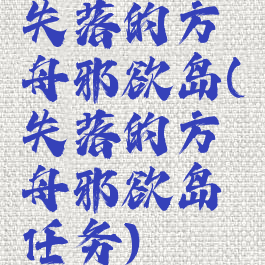 失落的方
舟邪欲岛(
失落的方
舟邪欲岛
任务)